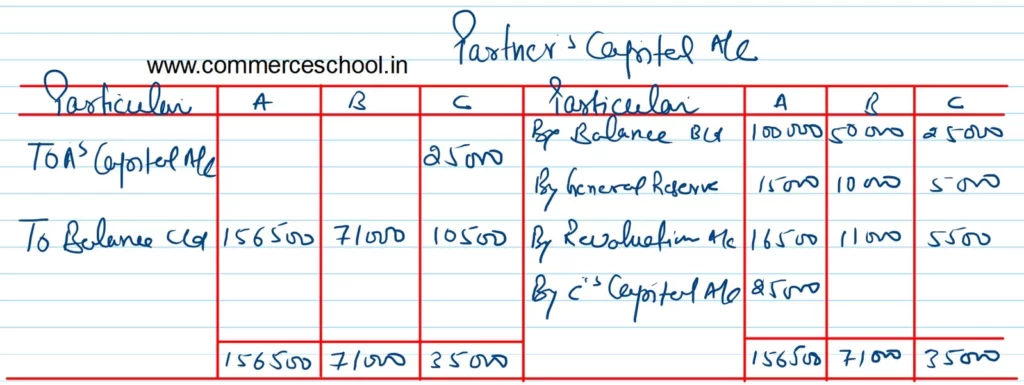 Partner's Capital A/c
www.commerceschool.in
Particular A B C Particular A B C
By Balance B/d 100000 50000 25000
To A's Capital A/c 25000
By General Reserve 15000 10000 5000
To Balance C/d 156500 71000 10500 By Revaluation A/c 16500 11000 5500
By C's Capital A/c 25000
156500 71000 35000 156500 71000 35000